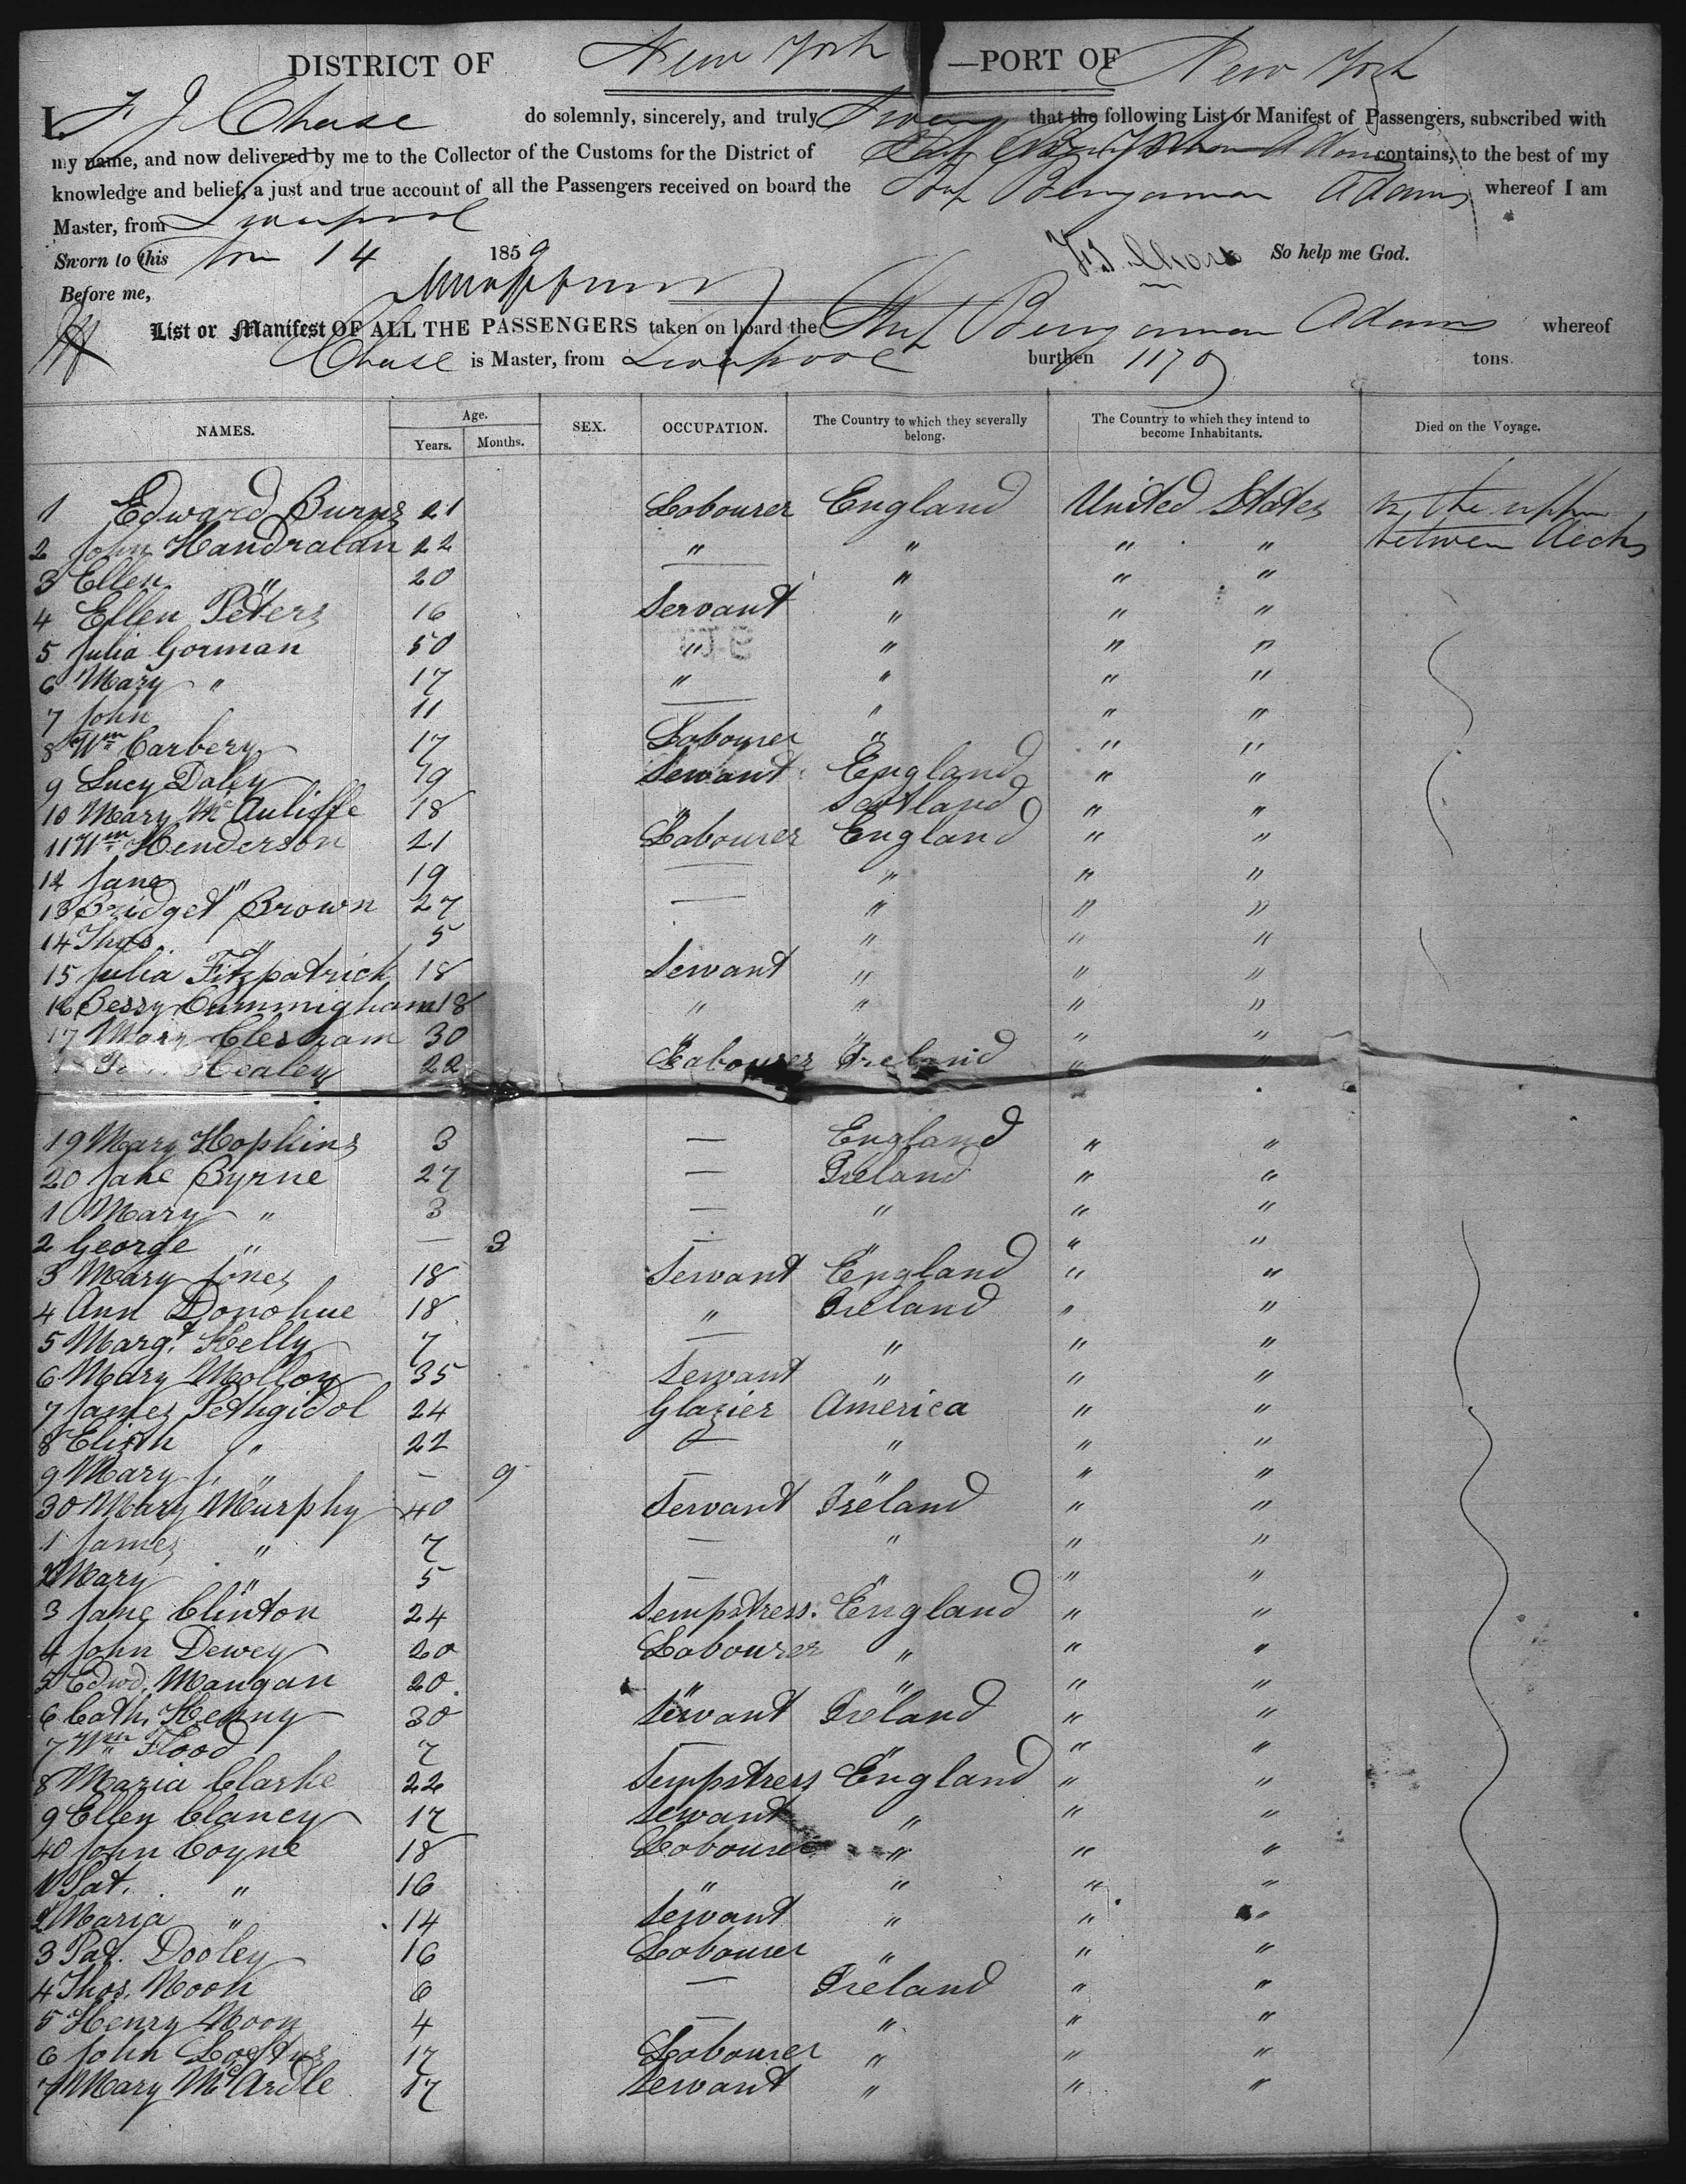 DISTRICT OF New York —PORT OF New York
I, F J Chase do solemnly, sincerely, and truly Swear that the following List or Manifest of Passengers, subscribed with
my name, and now delivered by me to the Collector of the Customs for the District of contains, to the best of my
knowledge and belief, a just and true account of all the Passengers received on board the Benjamin Adams whereof I am
Master, from Liverpool
Sworn to this 14 1859 F.J. Chase So help me God.
Before me,
List or Manifest OF ALL THE PASSENGERS taken on board the Ship Benjamin Adams whereof
Chase is Master, from Liverpool burthen 1170 tons.
NAMES. Age. Years. Months. SEX. OCCUPATION. The Country to which they severally belong. The Country to which they intend to become Inhabitants. Died on the Voyage.
1 Edward Burns 21 Labourer England United States In the upper
2 John Handralan 22 " " " " between decks
3 Ellen " 20 — " " "
4 Ellen Peters 16 Servant " " "
5 Julia Gorman 50 " " " "
6 Mary " 17 " " " "
7 John 11 — " " "
8 Wm Carbery 17 Labourer " " "
9 Lucy Daley 19 Servant England " "
10 Mary McAuliffe 18 " Scotland " "
11 Wm Henderson 21 Labourer England " "
12 Jane " 19 — " " "
13 Bridget Brown 27 — " " "
14 Thos " 5 " " "
15 Julia Fitzpatrick 18 Servant " " "
16 Bessy Cummigham 18 " " " "
17 Mary Clesham 30 " " " "
Healey 22 Labourer Ireland " "
19 Mary Hopkins 3 — England " "
20 Jane Byrne 27 — Ireland " "
1 Mary " 3 — " " "
2 George " — 3 — " " "
3 Mary Jones 18 Servant England " "
4 Ann Donohue 18 " Ireland " "
5 Margt. Kelly 7 — " " "
6 Mary Molloy 35 Servant " " "
7 James Pethgidol 24 Glazier America " "
8 Elizth " 22 — " " "
9 Mary J. " — 9 — " " "
30 Mary Murphy 40 Servant Ireland " "
1 James " 7 — " " "
2 Mary " 5 — " " "
3 Jane Clinton 24 Sempstress. England " "
4 John Dewey 20 Labourer " " "
5 Edwd. Mangan 20. " " " "
6 Cath. Kenny 30 Servant Ireland " "
7 Wm Flood 7 — " " "
8 Maria Clarke 22 Sempstress England " "
9 Ellen Clancy 17 Servant " " "
40 John Coyne 18 Labourer " " "
1 Pat. " 16 " " " "
2 Maria " 14 Servant " " "
3 Pat. Dooley 16 Labourer " " "
4 Thos. Moon 6 — Ireland " "
5 Henry Moon 4 — " " "
6 John Loftus 17 Labourer " " "
7 Mary McArdle 17 Servant " " "